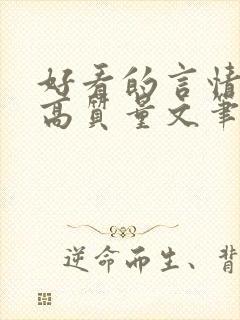 好看的言情
高质量文笔
逆命而生、背